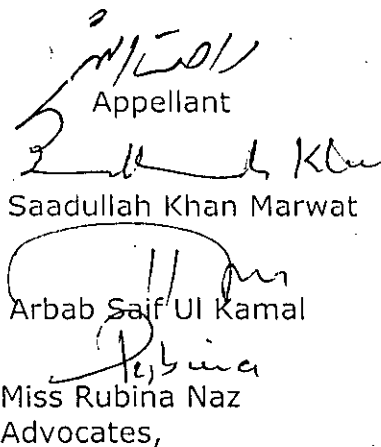 Appellant
Saadullah Khan Marwat
Arbab Saif Ul Kamal
Rubina
Miss Rubina Naz
Advocates,